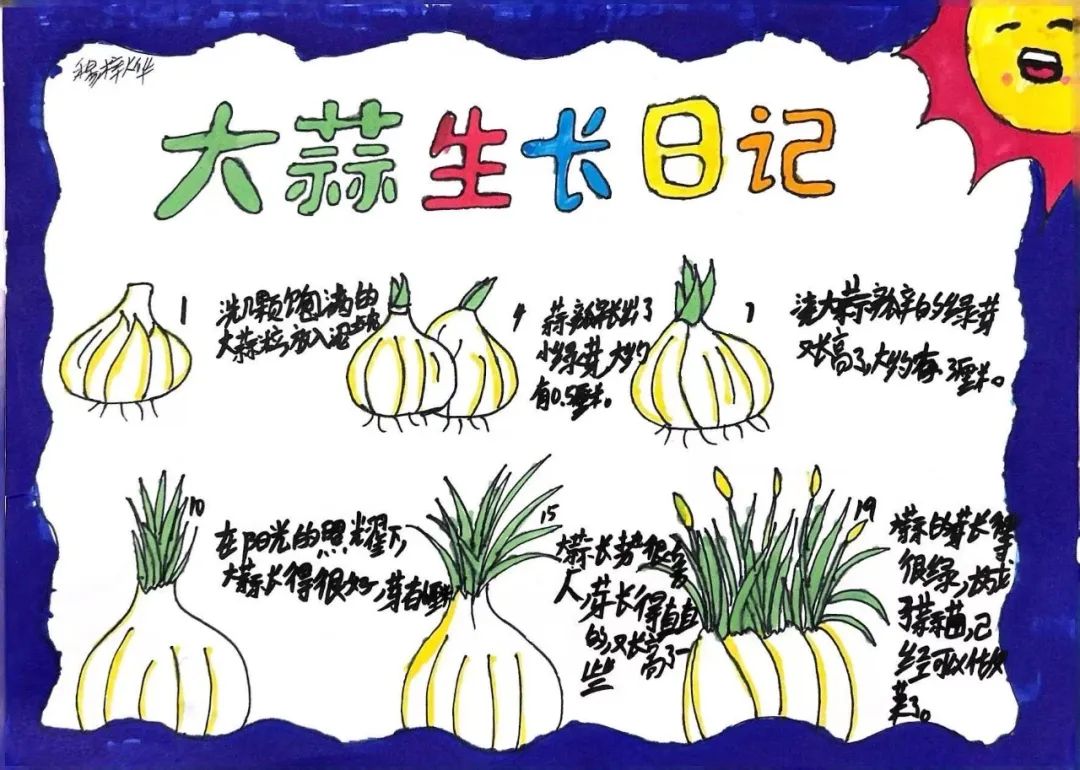 杨梓烨
大蒜生长日记
1
洗几颗饱满的
大蒜粒,放入泥土
4
蒜瓣长出了
小绿芽,大约
有0.5厘米。
7
大蒜瓣的绿芽
又长高了,大约有3厘米。
10
在阳光的照耀下,
大蒜长得很好,芽有厘米
15
大蒜长势很喜
人,芽长得直直
的,又长高了一
些
19
蒜的芽长得
很绿,
了蒜苗,已
经可以做
菜了。